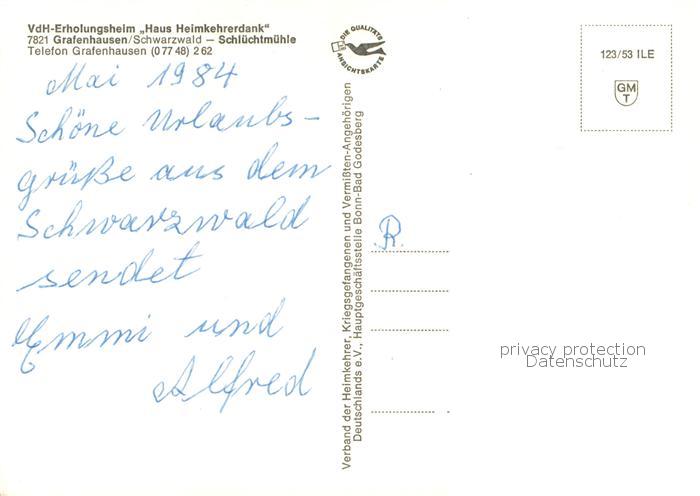 VdH-Erholungsheim „Haus Heimkehrerdank“
7821 Grafenhausen/Schwarzwald – Schlüchtmühle
Telefon Grafenhausen (0 77 48) 2 62
Mai 1984
Schöne Urlaubs-
grüße aus dem
Schwarzwald
sendet
Emmi und
Alfred
DIE QUALITÄTS
ANSICHTSKARTE
Verband der Heimkehrer, Kriegsgefangenen und Vermißten-Angehörigen
Deutschlands e.V., Hauptgeschäftsstelle Bonn-Bad Godesberg
123/53 ILE
GM
T
R.
privacy protection
Datenschutz